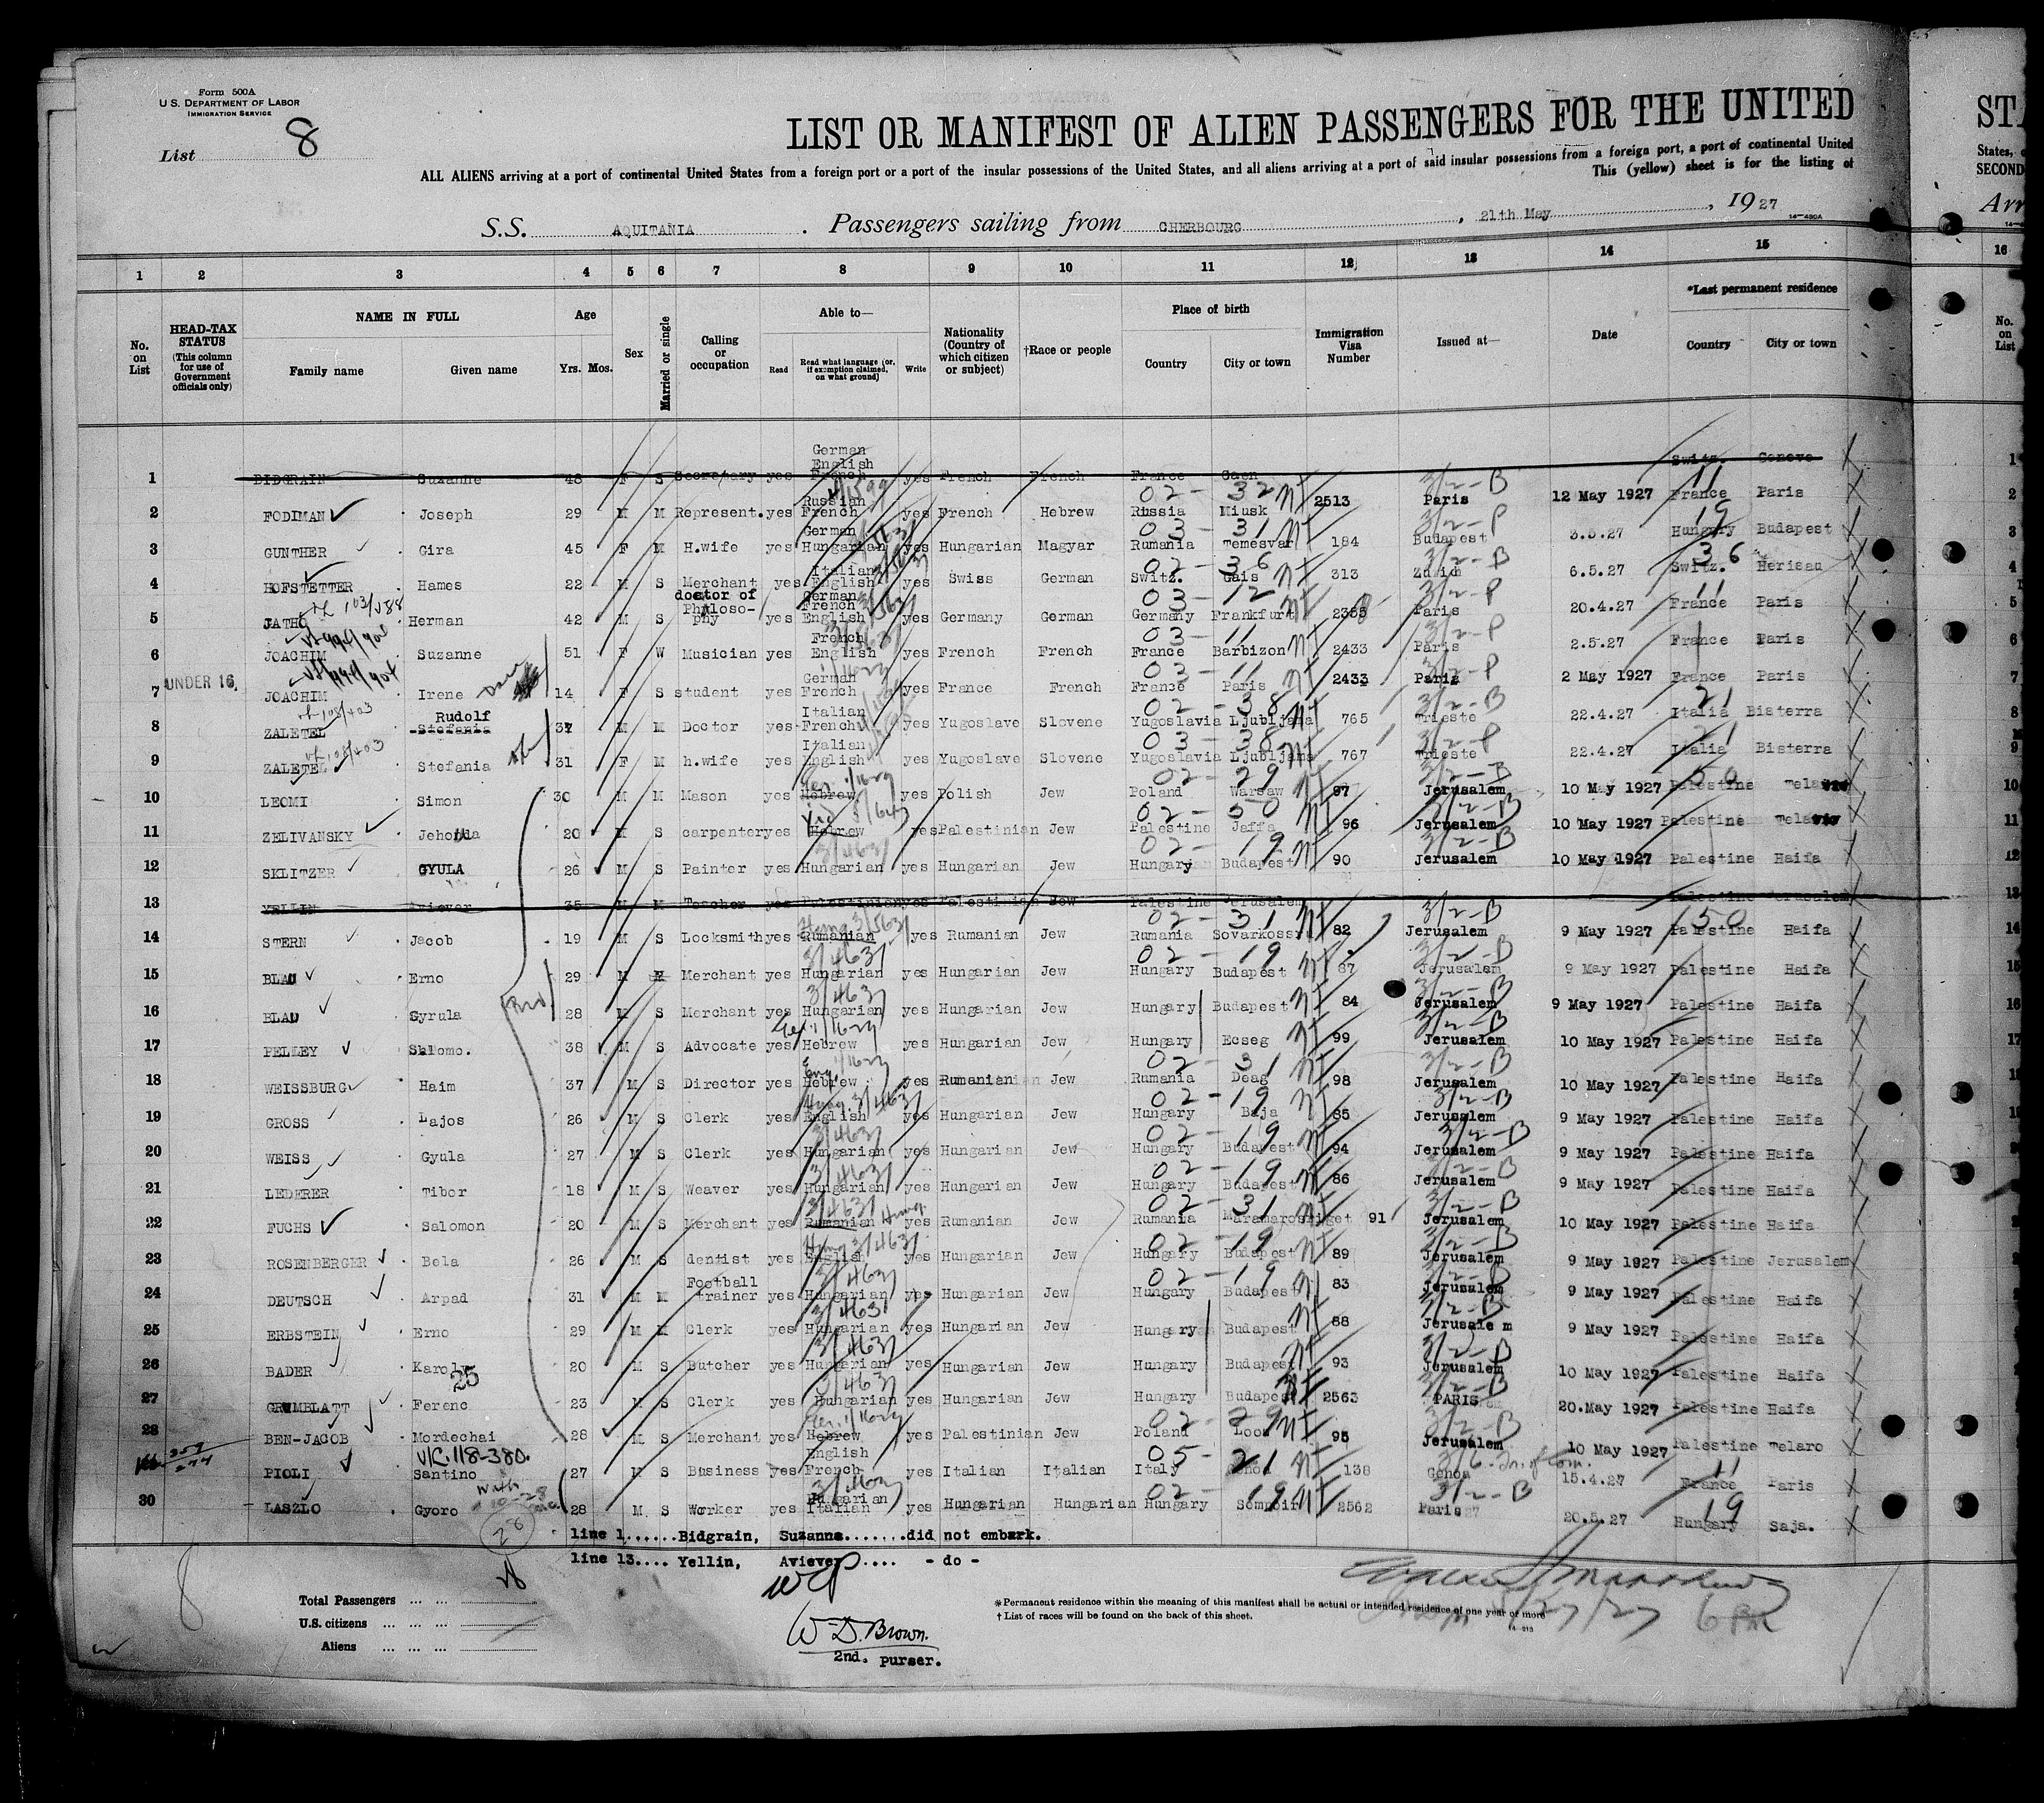 Form 500A
U. S. DEPARTMENT OF LABOR
IMMIGRATION SERVICE
List 8
LIST OR MANIFEST OF ALIEN PASSENGERS FOR THE UNITED
ALL ALIENS arriving at a port of continental United States from a foreign port or a port of the insular possessions of the United States, and all aliens arriving at a port of said insular possessions from a foreign port, a port of continental United
This (yellow) sheet is for the listing of
S.S. AQUITANIA. Passengers sailing from CHERBOURG, 21th May, 1927
14—430A
1 2 3 4 5 6 7 8 9 10 11 12 13 14 15
No. on List
HEAD-TAX STATUS (This column for use of Government officials only)
NAME IN FULL
Family name Given name
Age
Yrs. Mos.
Sex
Married or single
Calling or occupation
Able to—
Read Read what language (or, if exemption claimed, on what ground) Write
Nationality (Country of which citizen or subject)
†Race or people
Place of birth
Country City or town
Immigration Visa Number
Issued at—
Date
*Last permanent residence
Country City or town
1 BIDGRAIN Suzanne 48 F S Secretary yes German English French yes French French France Caen Switz. Geneve
2 FODIMAN Joseph 29 M M Represent. yes Russian French yes French Hebrew Russia Miusk 2513 Paris 12 May 1927 France Paris
3 GUNTHER Gira 45 F M H.wife yes German Hungarian yes Hungarian Magyar Rumania Temesvar 184 Budapest 3.5.27 Hungary Budapest
4 HOFSTETTER Hames 22 M S Merchant yes Italian English yes Swiss German Switz. Gais 313 Zurich 6.5.27 Switz. Herisau
5 JATHO Herman 42 M S doctor of Philosophy yes German French English yes Germany German Germany Frankfurt 2385 Paris 20.4.27 France Paris
6 JOACHIM Suzanne 51 F W Musician yes French English yes French French France Barbizon 2433 Paris 2.5.27 France Paris
UNDER 16.
7 JOACHIM Irene 14 F S student yes German French yes France French France Paris 2433 Paris 2 May 1927 France Paris
8 ZALETEL Rudolf Stefania M M Doctor yes Italian French yes Yugoslave Slovene Yugoslavia Ljubljana 765 Trieste 22.4.27 Italia Bisterra
9 ZALETEL Stefania 31 F M h.wife yes Italian English yes Yugoslave Slovene Yugoslavia Ljubljana 767 Trieste 22.4.27 Italia Bisterra
10 LEOMI Simon 30 M M Mason yes Hebrew yes Polish Jew Poland Warsaw 97 Jerusalem 10 May 1927 Palestine
11 ZELIVANSKY Jehouda 20 M S carpenter yes Hebrew yes Palestinian Jew Palestine Jaffa 96 Jerusalem 10 May 1927 Palestine
12 SKLITZER GYULA 26 M S Painter yes Hungarian yes Hungarian Jew Hungary Budapest 90 Jerusalem 10 May 1927 Palestine Haifa
13 YELLIN Aviever 35 M M Teacher yes Palestinian yes Palestinian Jew Palestine Jerusalem Palestine Jerusalem
14 STERN Jacob 19 M S Locksmith yes Rumanian yes Rumanian Jew Rumania 82 Jerusalem 9 May 1927 Palestine Haifa
15 BLAU Erno 29 M M Merchant yes Hungarian yes Hungarian Jew Hungary Budapest 87 Jerusalem 9 May 1927 Palestine Haifa
16 BLAU Gyrula 28 M S Merchant yes Hungarian yes Hungarian Jew Hungary Budapest 84 Jerusalem 9 May 1927 Palestine Haifa
17 PELLEY Shlomo. 38 M S Advocate yes Hebrew yes Hungarian Jew Hungary Ecseg 99 Jerusalem 10 May 1927 Palestine Haifa
18 WEISSBURG Haim 37 M S Director yes Hebrew yes Rumanian Jew Rumania Deag 98 Jerusalem 10 May 1927 Palestine Haifa
19 GROSS Lajos 26 M S Clerk yes English yes Hungarian Jew Hungary Baja 85 Jerusalem 9 May 1927 Palestine Haifa
20 WEISS Gyula 27 M S Clerk yes Hungarian yes Hungarian Jew Hungary Budapest 94 Jerusalem 9 May 1927 Palestine Haifa
21 LEDERER Tibor 18 M S Weaver yes Hungarian yes Hungarian Jew Hungary Budapest 86 Jerusalem 9 May 1927 Palestine Haifa
22 FUCHS Salomon 20 M S Merchant yes Rumanian yes Rumanian Jew Rumania Maramarossziget 91 Jerusalem 10 May 1927 Palestine Haifa
23 ROSENBERGER Bela 26 M S dentist yes English yes Hungarian Jew Hungary Budapest 89 Jerusalem 9 May 1927 Palestine Jerusalem
24 DEUTSCH Arpad 31 M M Football trainer yes Hungarian yes Hungarian Jew Hungary Budapest 83 Jerusalem 9 May 1927 Palestine Haifa
25 ERBSTEIN Erno 29 M M Clerk yes Hungarian yes Hungarian Jew Hungary Budapest 88 Jerusale m 9 May 1927 Palestine Haifa
26 BADER Karoly 20 M S Butcher yes Hungarian yes Hungarian Jew Hungary Budapest 93 Jerusalem 10 May 1927 Palestine Haifa
25
27 GRUMBLATT Ferenc 23 M S Clerk yes Hungarian yes Hungarian Jew Hungary Budapest 2563 PARIS 20.May 1927 Palestine Haifa
28 BEN-JACOB Mordechai 28 M S Merchant yes Hebrew yes Palestinian Jew Poland 95 Jerusalem 10 May 1927 Palestine Telaro
V/C. 118-380.
PIOLI Santino 27 M S Business yes English French yes Italian Italian Italy 138 Genoa 15.4.27 France Paris
30 LASZLO Gyoro 28 M S Worker yes Hugarian Italian yes Hungarian Hungarian Hungary 2562 Paris 20.5.27 Hungary Saja.
line 1......Bidgrain, Suzanne.......did not embark.
line 13.... Yellin, Aviever.... - do -
Total Passengers
U.S. citizens
Aliens
W. D. Brown.
2nd. purser.
*Permanent residence within the meaning of this manifest shall be actual or intended residence of one year or more
† List of races will be found on the back of this sheet.
5/27/27 6 PM
STA
States,
SECOND
Arr
16
No. on List